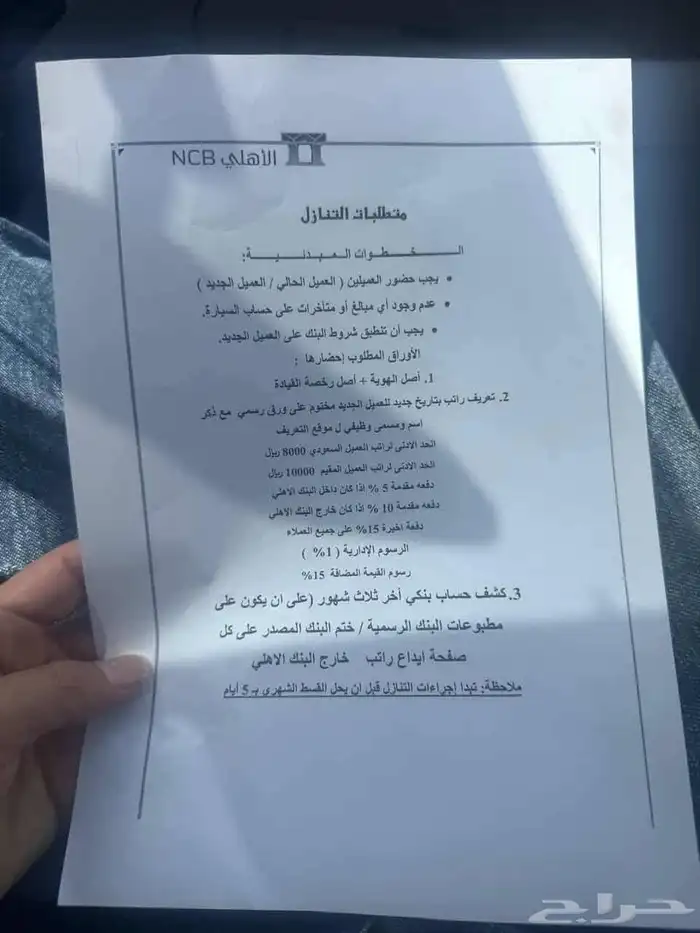 الأهلي NCB
متطلبات التنازل
الـــخـــطـــوات الـمـبـدئـيـــة:
• يجب حضور العميلين ( العميل الحالي / العميل الجديد )
• عدم وجود أي مبالغ أو متأخرات على حساب السيارة.
• يجب أن تنطبق شروط البنك على العميل الجديد.
الأوراق المطلوب إحضارها :
1. أصل الهوية + أصل رخصة القيادة
2. تعريف راتب بتاريخ جديد للعميل الجديد مختوم على ورق رسمي مع ذكر
اسم ومسمى وظيفي ل موقع التعريف
الحد الادنى لراتب العميل السعودي 8000 ريال
الحد الادنى لراتب العميل المقيم 10000 ريال
دفعه مقدمة 5 % اذا كان داخل البنك الاهلي
دفعه مقدمة 10 % اذا كان خارج البنك الاهلي
دفعة اخيرة 15% على جميع العملاء
الرسوم الإدارية ( 1% )
رسوم القيمة المضافة 15%
3. كشف حساب بنكي أخر ثلاث شهور (على ان يكون على
مطبوعات البنك الرسمية / ختم البنك المصدر على كل
صفحة ايداع راتب خارج البنك الاهلي
ملاحظة: تبدا إجراءات التنازل قبل ان يحل القسط الشهري بـ 5 أيام
حراج